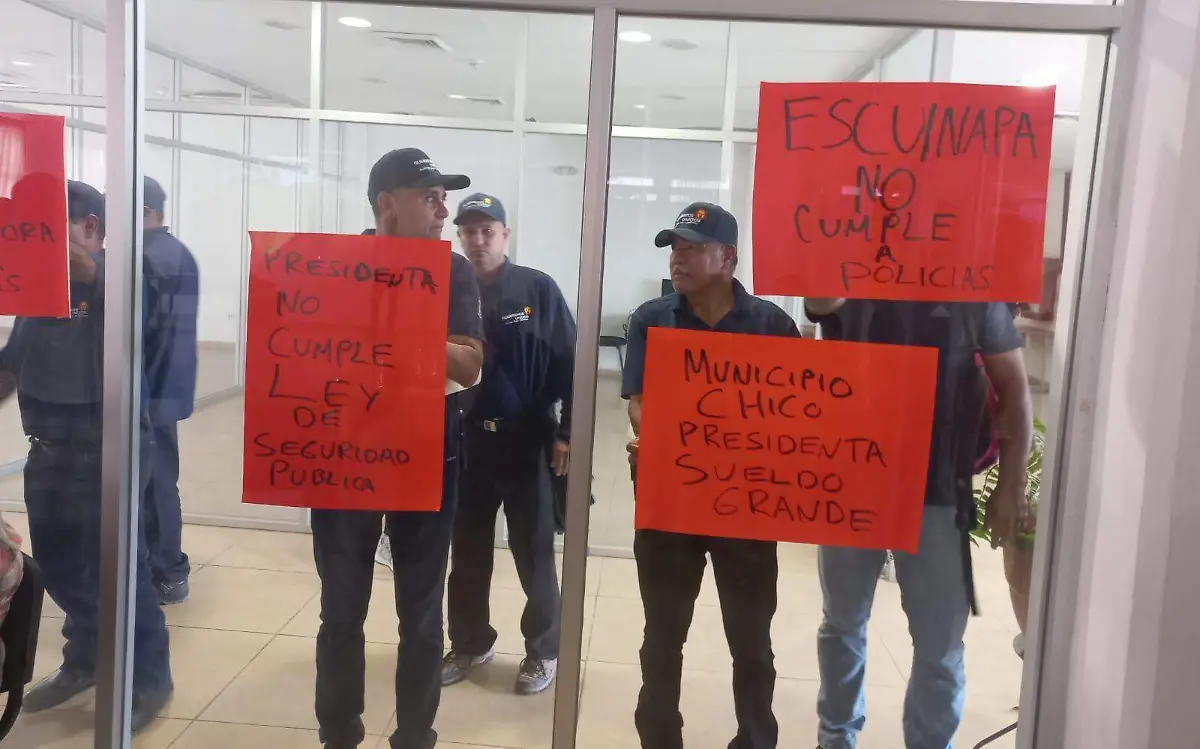 ORA
S
PRESIDENTA
NO
CUMPLE
LEY
DE
SEGURIDAD
PUBLICA
ESCUINAPA
NO
CUMPLE
A
POLICIAS
MUNICIPIO
CHICO
PRESIDENTA
SUELDO
GRANDE